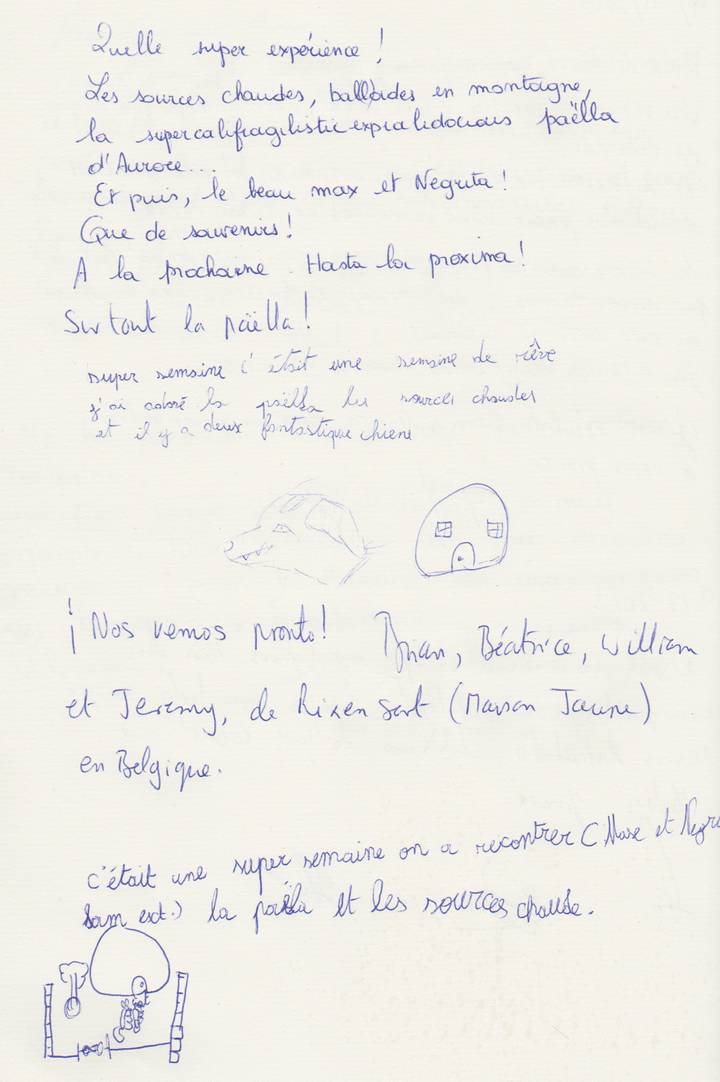 Quelle super expérience !
Les sources chaudes, ballades en montagne,
la supercalifragilisticexpralidocious paëlla
d'Aurore...
Et puis, le beau max et Negrita !
Que de souvenirs !
A la prochaine. Hasta la proxima !
Surtout la paëlla !
super semaine c'était une semaine de rêve
j'ai adoré la paëlla les sources chaudes
et il y a deux fantastique chiens
¡Nos vemos pronto! Brian, Béatrice, William
et Jeremy, de Rixensart (Maison Jaune)
en Belgique.
c'était une super semaine on a recontrer ( Maxe et Negre
Sam ect.) la paëlla et les sources chaude.